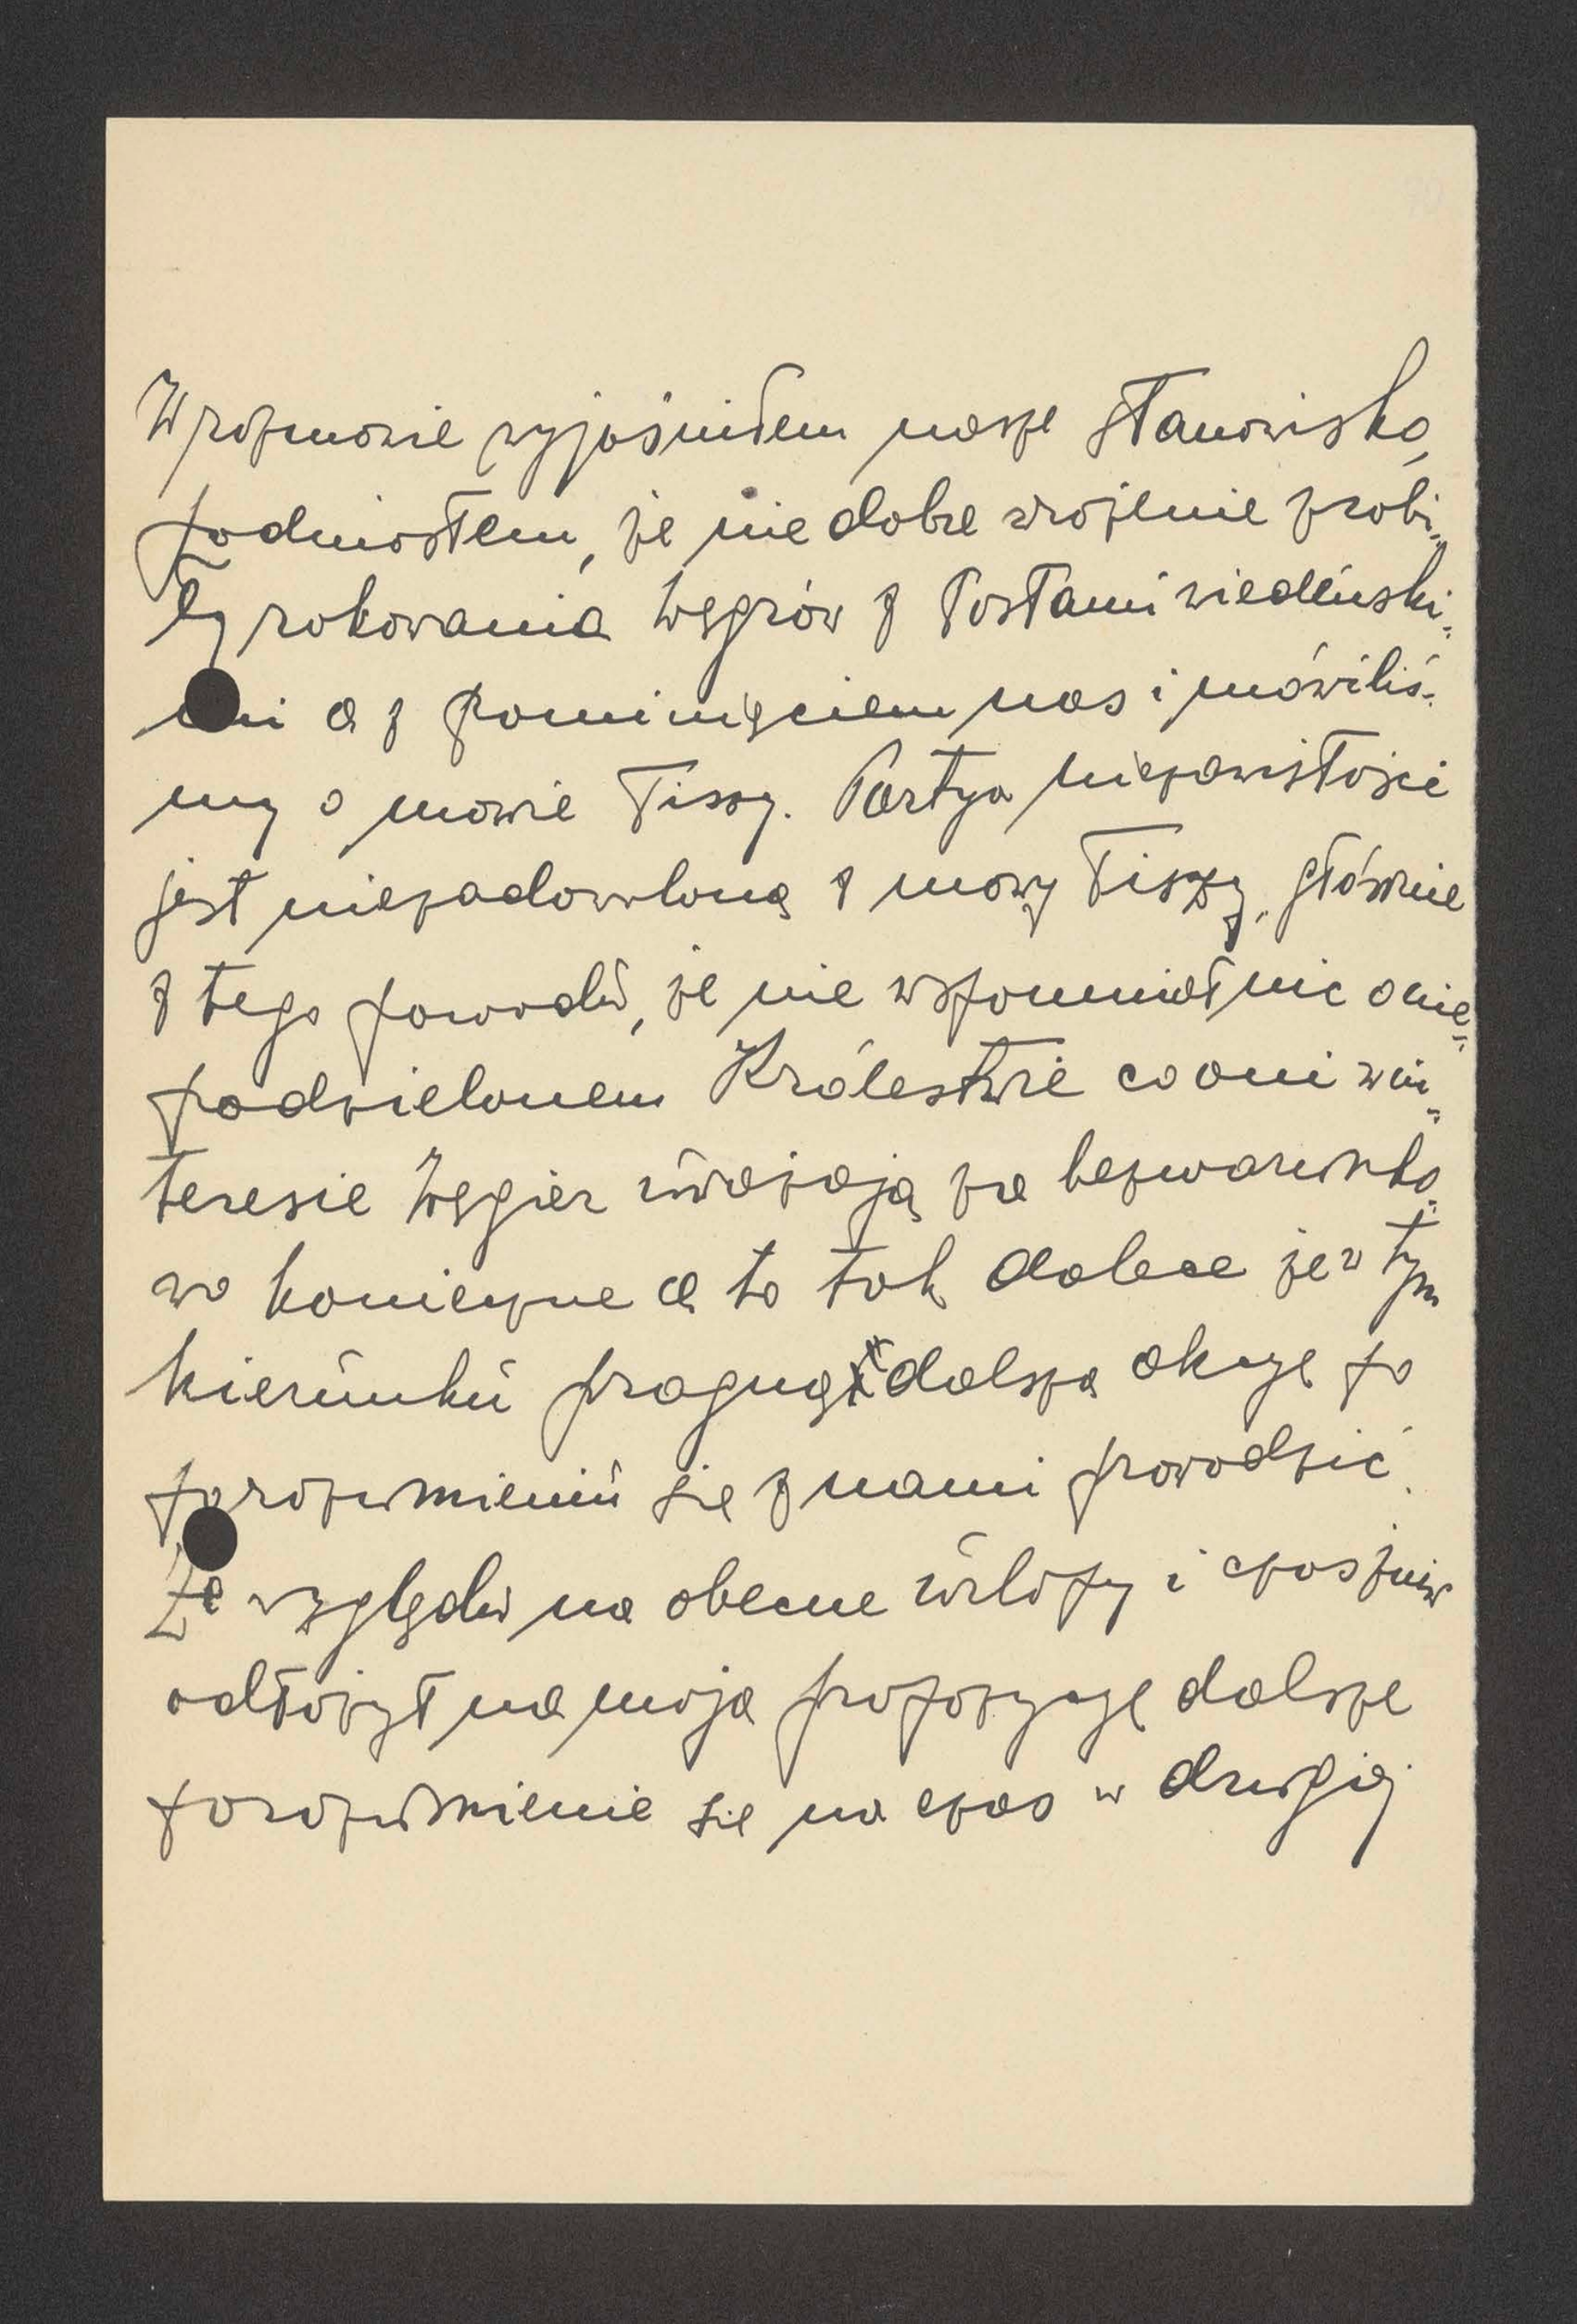 W rozmowie wyjaśniłem nasze stanowisko,
podniosłem, że nie dobre wrażenie zrobi-
ły rokowania Węgrów z Posłami wiedeński-
mi a z pominięciem nas i mówiliś-
my o mowie Tiszy. Partya niezawisłości
jest niezadowloną z mowy Tiszy, głównie
z tego powodu, że nie wspomniał nic o nie-
podzielonem Królestwie co oni w in-
teresie Węgier uważają za bezwarunko-
wo konieczne a to tak dalece że w tym
kierunku pragną dalszą akcyę po
porozumieniu się z nami prowadzić.
Ze względu na obecne urlopy i czas żniw
odłożył na moją propozycyę dalsze
porozumienie się na czas w drugiej